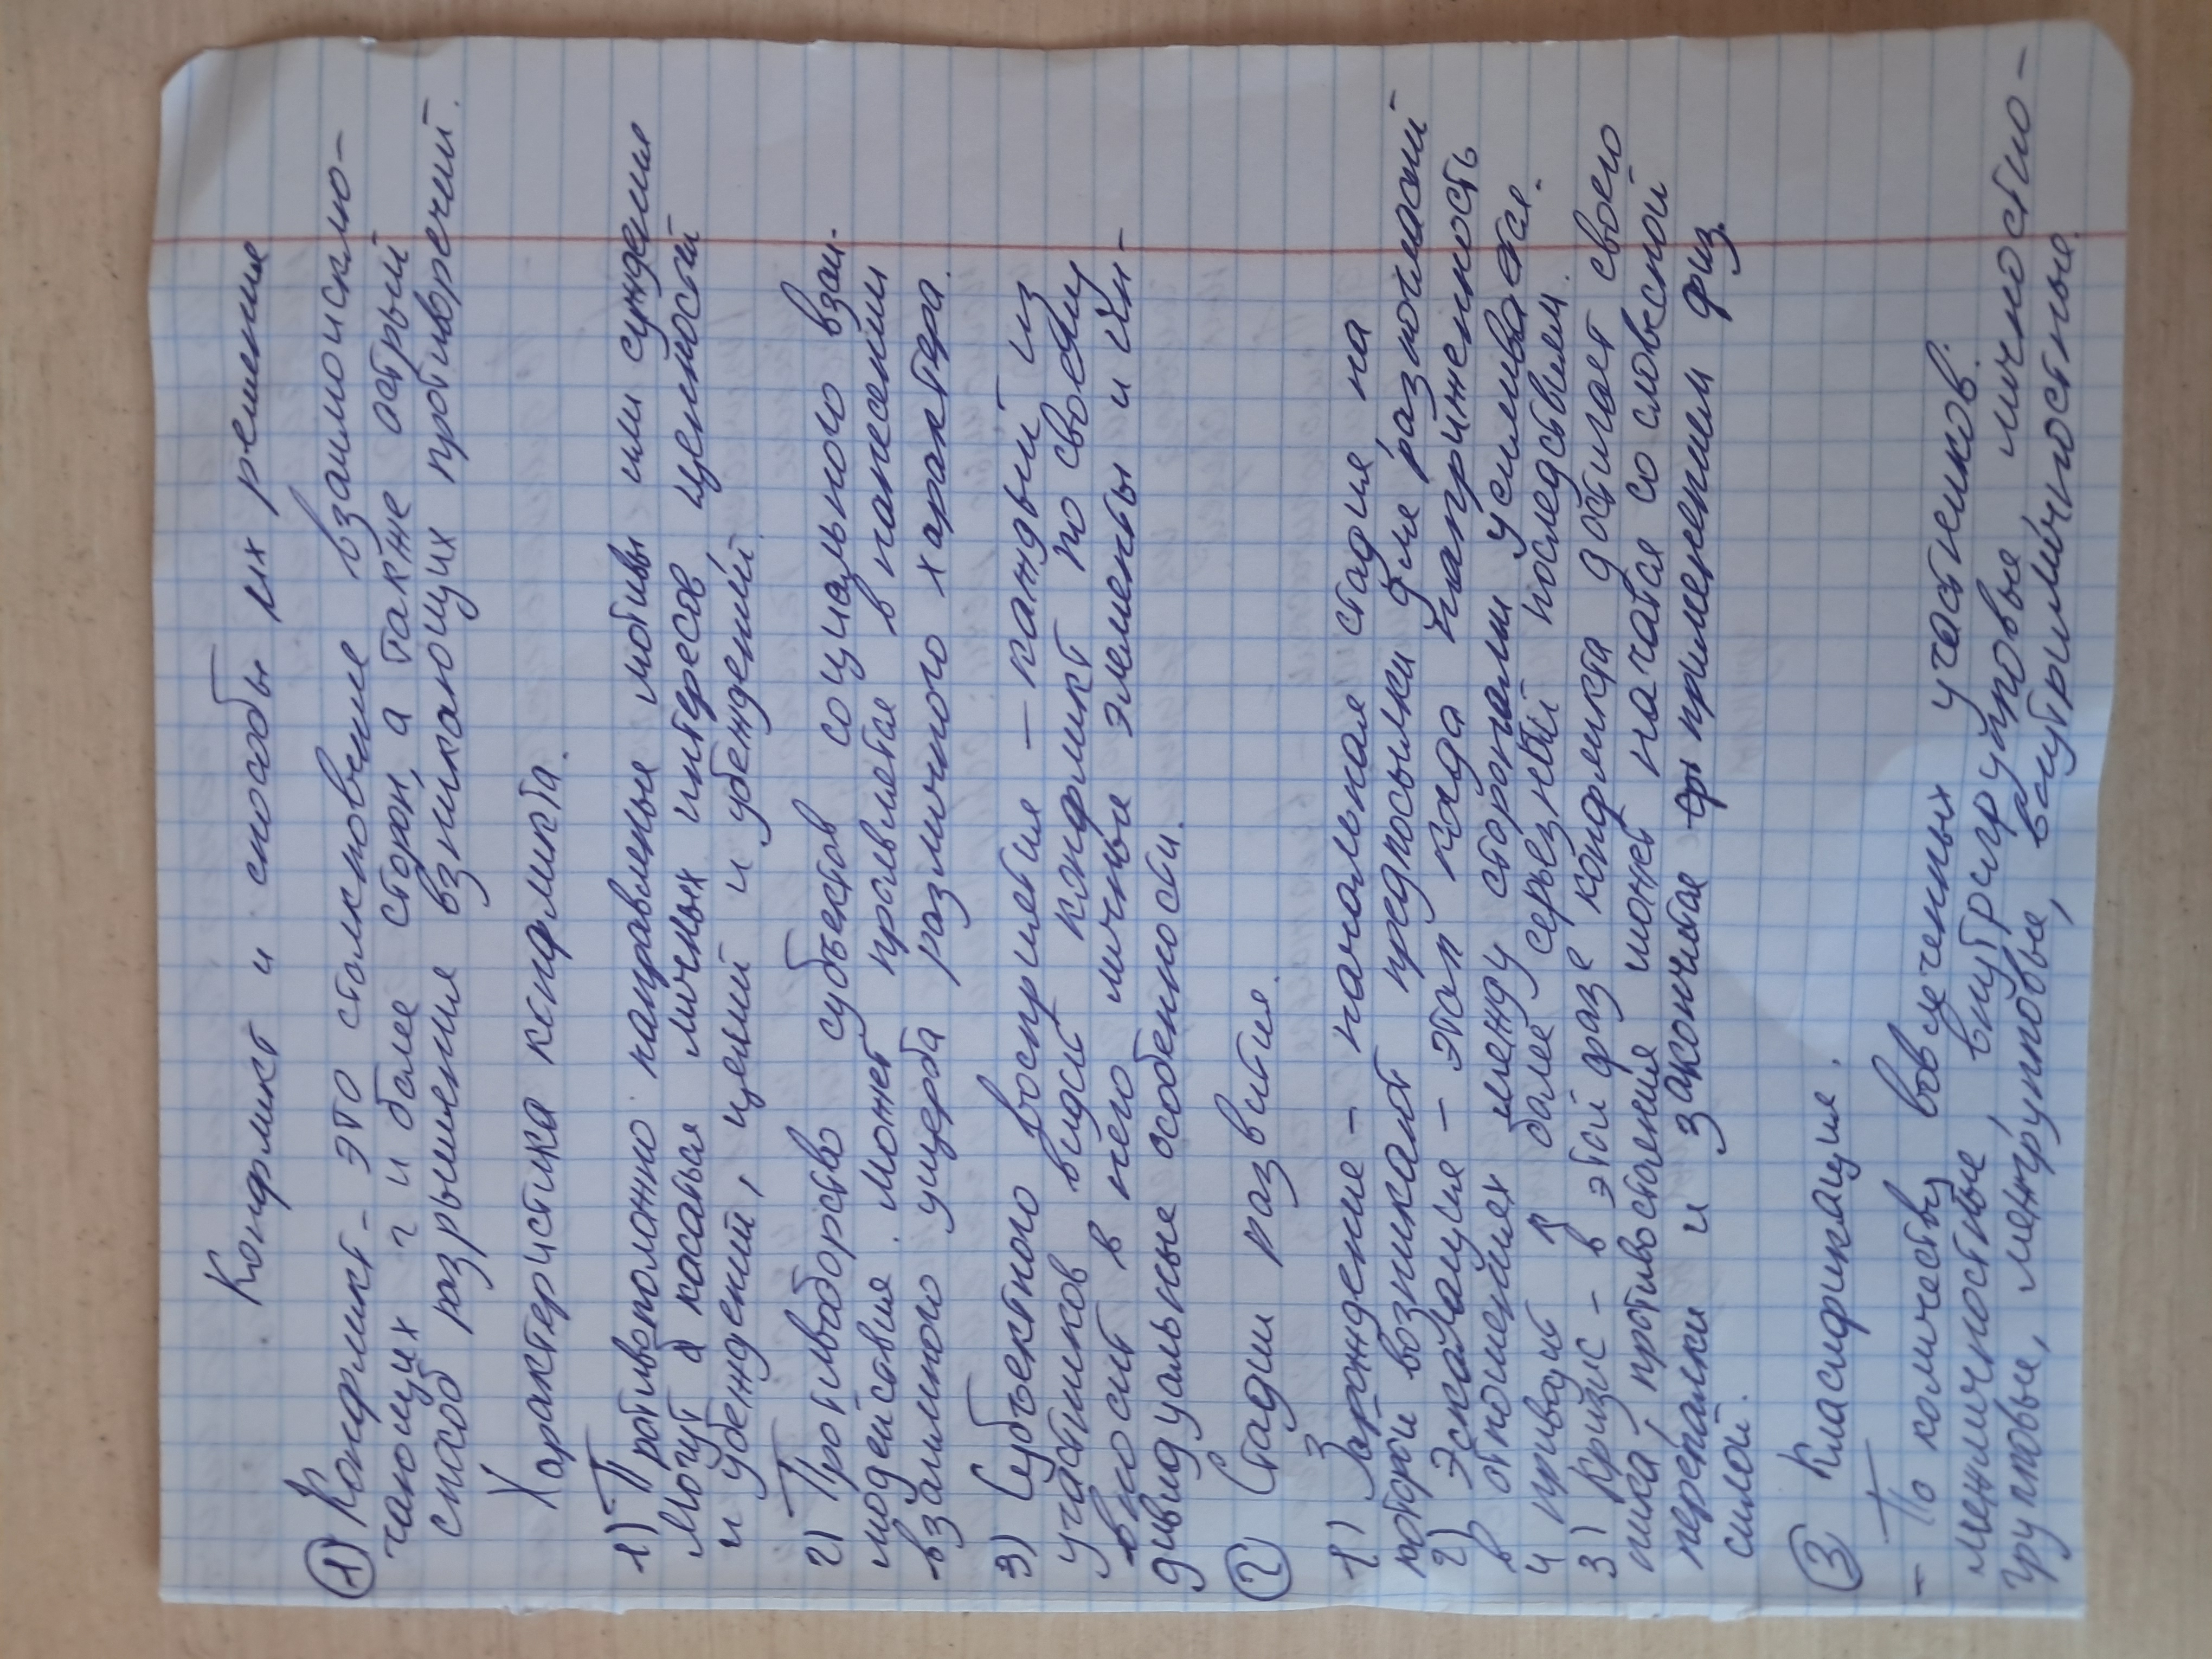 Конфликт и способы их решения
① Конфликт - это столкновение взаимоисклю-
чающих 2 и более сторон, а также острый
способ разрешения возникающих противоречий.
Характеристика конфликта.
1) Противоположно направленые мотивы или суждения
Могут касаться личных интересов ценностей
и убеждений, целий и убеждений.
2) Противоборство субъектов социального взаи-
модействия. Может проявлятся в нанесении
взаимного ущерба различного характера.
3) Субъектного восприетия - каждый из
участников видит конфликт по своему
вносит в него личные элементы и ин-
дивидуальные особенности.
② Стадии развития.
1) Зарождение - начальная стадия на
которой возникают предпосылки для разногласий
2) Эскалация - этап когда напряженность
в отношениях между сторонами усиливается.
и привоит к более серьезной последствием.
3) Кризис - в этой фазе конфликта достигает своего
пика, противостояния может начатся со словесной
перепалки и закончится применением физ.
силой.
③ Класификация.
- По количеству вовлеченных участников.
межличностные, внутригрупповые личностно-
групповые, межгрупповые, внутриличностные.